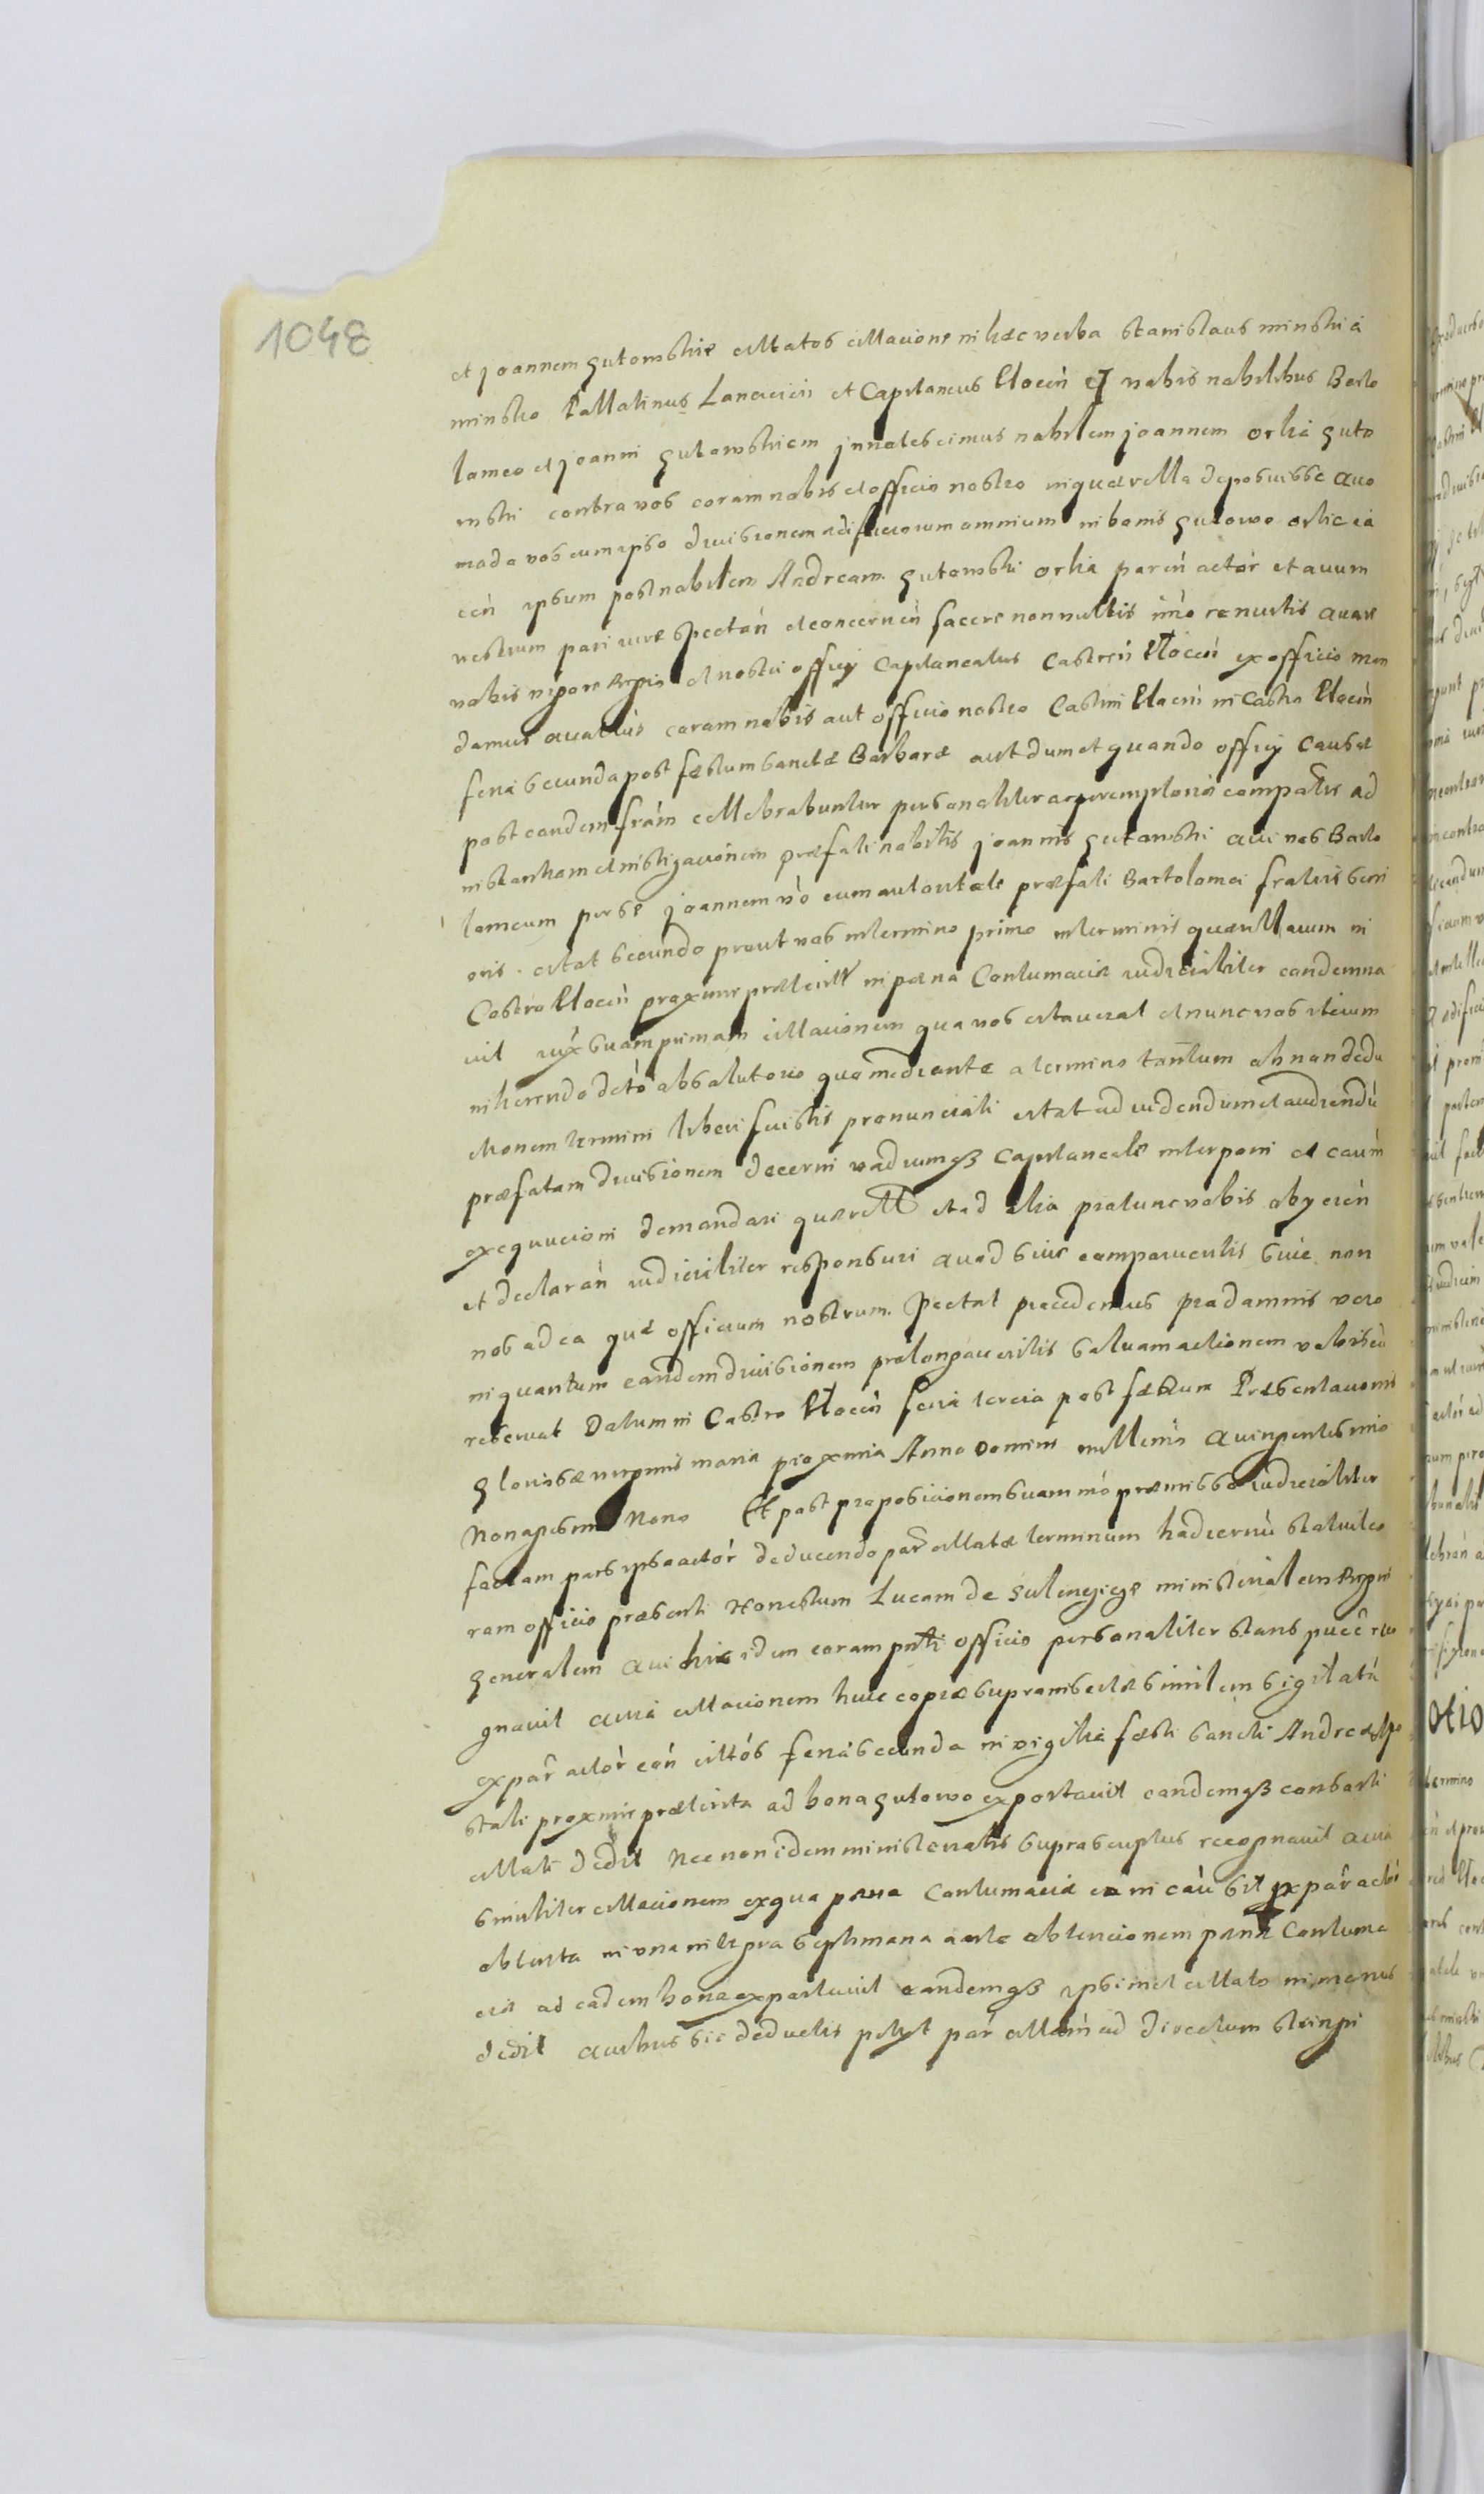 1048
et Joannem Gutowskie citatos citacione in hæc verba Stanislaus Minski a
Minsko Pallatinus Lanciciæ et Capitaneus Plocen vobis nobilibus Barto
lomeo et Joanni Gutowskiem innotescimus nobilem Joannem Orlia Guto
wski contra vos coram nobis et officio nostro in quærella deposuisse Quo
modo vos cum ipso divisionem ædificiorum omnium in bonis Gutowo Orlicia
cen ipsum post nobilem Andream Gutowski Orlia paren actor et auum
vestrum pari iure spectan et concernen facere non vultis imo renuitis Quare
vobis vigore Regio et nostri officy Capitanealus Castren Plocen ex officio man
damus Quatenus coram nobis aut officio nostro Castren Plocen in Castro Plocen
feria secunda post festum Sanctæ Barbaræ aut dum et quando officy causæ
post eandem feriam cellebrabuntur personaliter ac peremptorie compatis ad
instantiam et instigacionem præfati nobilis Joannis Gutowski Qui vos Barto
lomeum per se Joannem vo cum autoritate præfati Bartolomei fratris seni
oris citat secundo prout vos in termino primo in terminis querellarum in
Castro Plocen proxime præterit in pœna Contumaciæ iudicialiter condemna
vit iux suam primam citacionem qua vos citaverat et nunc vos iterum
inherendo deto absolutorio quo mediante a termino tantum ob non dedu
ctionem termini liberi fuistis pronunciati citat ad videndum et audiendum
præfatam divisionem decerni vadiumqz Capitaneale interponi et caum
exequucioni demandari et ad alia pro tunc vobis obycien
et declaran iudicialiter responsuri Quod sive comparueritis sive non
nos ad ea quæ officium nostrum spectat procedemus pro damnis vero
in quantum eandem divisionem prolongaueritis saluam actionem vobiscum
reservat Datum in Castro Plocen feria tercia post festum Præsentacionis
Gloriosæ virginis Maria proxima Anno Domini millesimo Quingentesimo
Nonagesimo Nono Et post proposicionem suam mo præmisso iudicialiter
factam pars ipsa actor deducendo par citatæ terminum hodiernum statuit co
ram officio præsenti Honestum Lucam de Sulencyce ministerialem Regni
generalem Qui hic idem coram pnti officio personaliter stans
gnavit Quia citacionem huic copiæ suprainsertæ similem sigilatam
ex par actor con citos feria secunda in vigilia festi Sancti Andreæ Apo
stoli proxime præterita ad bona Gutowo exportavit eandemqz consorti
citati dedit Nec non idem ministerialis suprascriptus recognavit Quia
similiter citacionem ex qua pœna Contumaciæ ea in cau sit ex par actor
obtenta in una integra septimana ante obtencionem pœnæ Contuma
ciæ ad eadem bona exportavit eandemqz ipsimet citato in manus
dedit Quibus sic deductis petyt par citam ad directum stringi